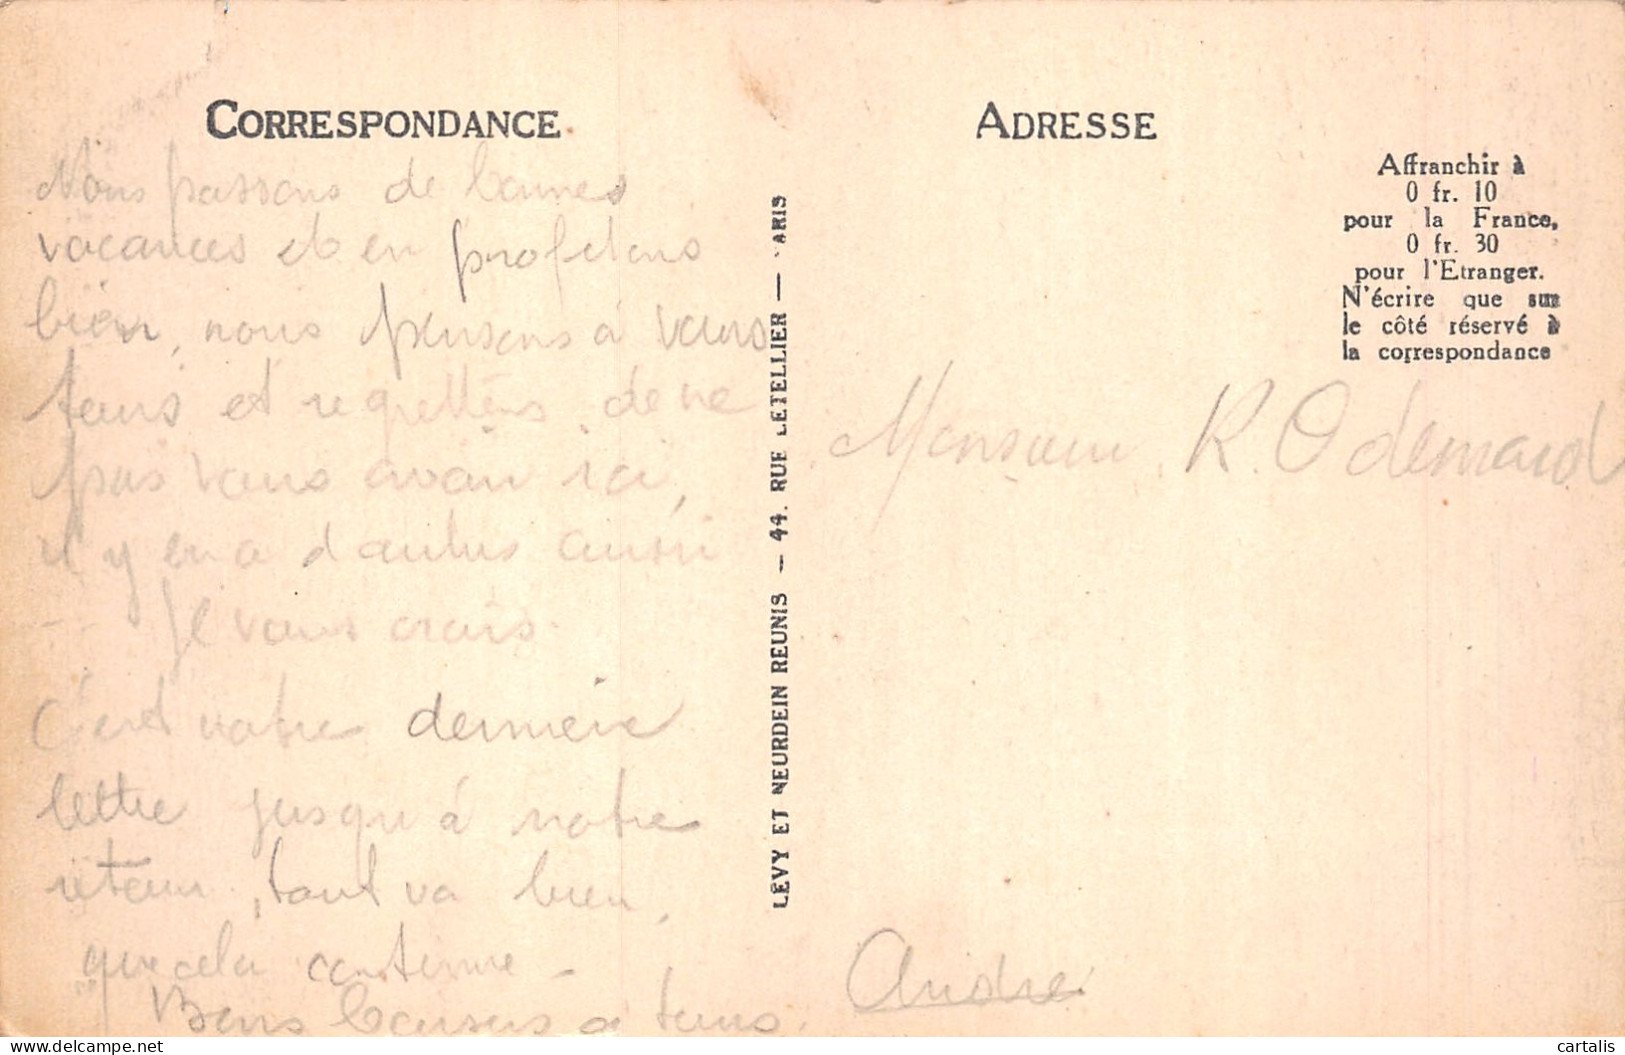 CORRESPONDANCE
Nous passons de bonnes
vacances et en profitons
bien, nous pensons à vous
tous et regrettons de ne
pas vous avoir ici,
il y en a d'autres aussi
Je vous crois.
C'est notre dernière
lettre jusqu'à notre
retour, tout va bien,
que cela continue -
Bons baisers à tous.
LÉVY ET NEURDEIN RÉUNIS — 44. RUE LETELLIER — PARIS
ADRESSE
Affranchir à
0 fr. 10
pour la France,
0 fr. 30
pour l'Etranger.
N'écrire que sur
le côté réservé à
la correspondance
Monsieur R. Odemard
André
cartalis